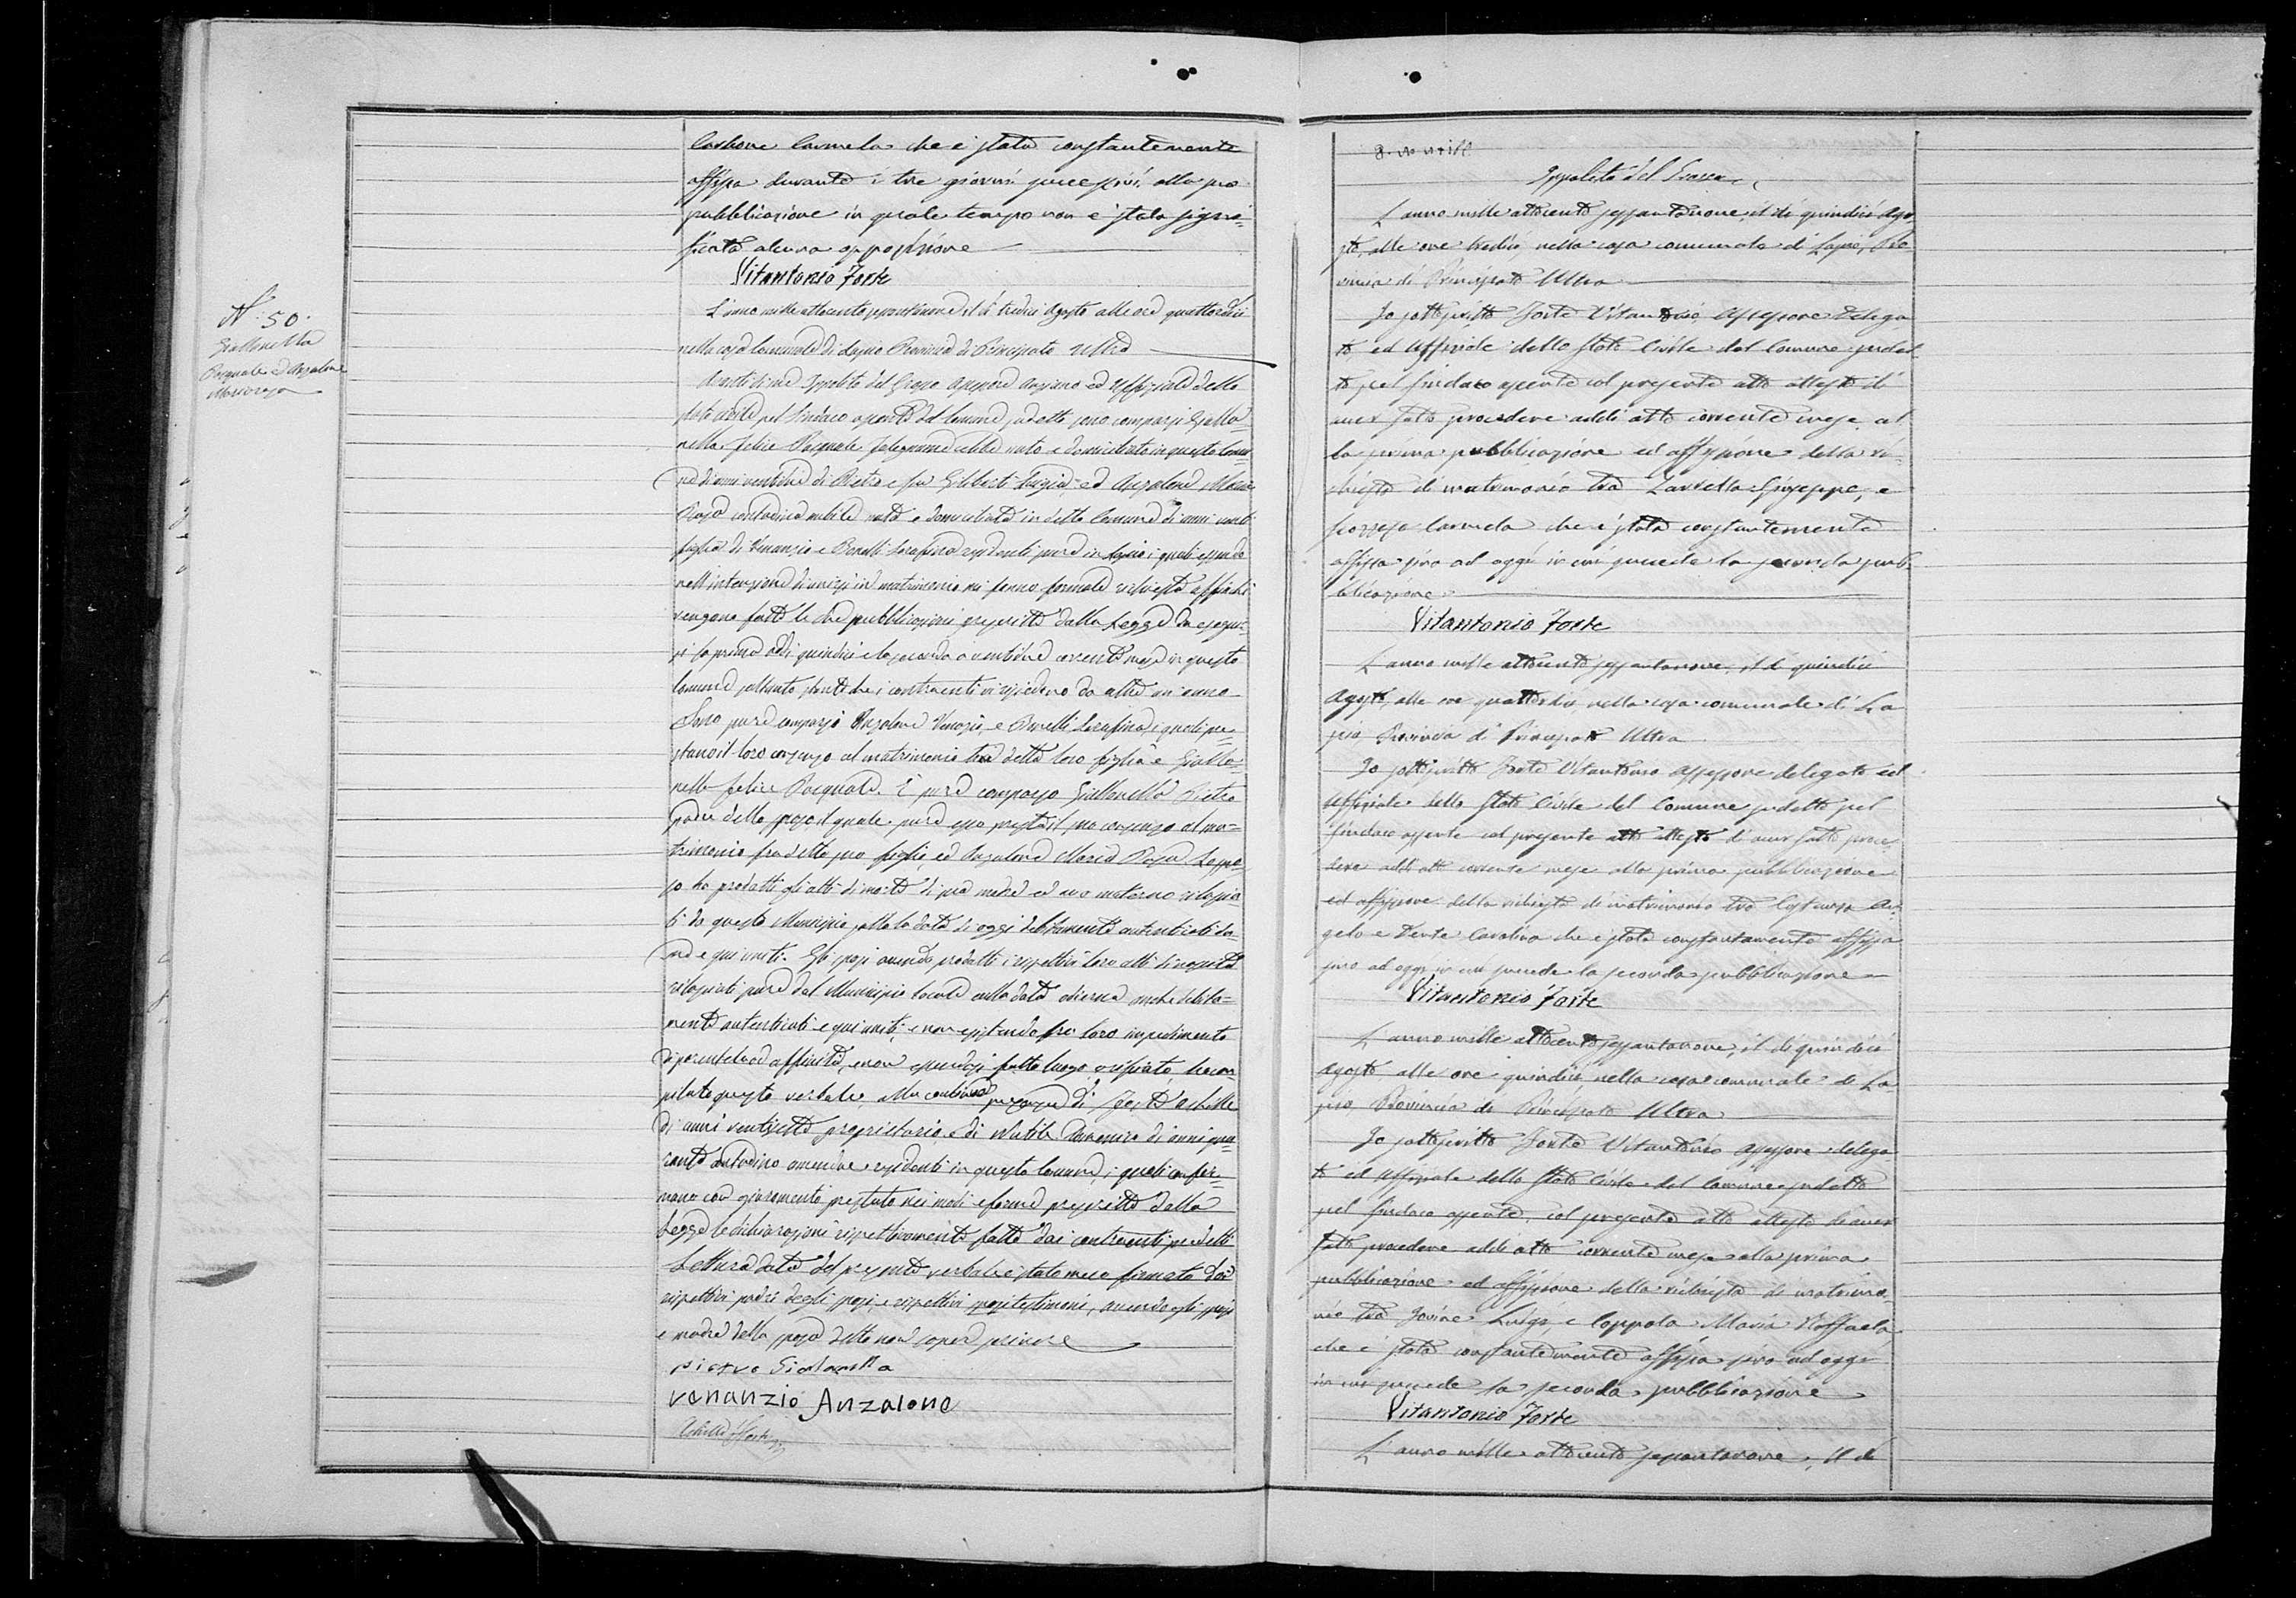 Carbone Carmela che è stata constantemente
affissa durante i tre giorni successivi alla
pubblicazione in quale tempo non è stata signi-
ficata alcuna opposizione
Vitantonio Forte
N. 50.
Giallonella
Pasquale ed Anzalone
Mariarosa
L'anno mille ottocento sessantanove il dì tredici Agosto alle ore quattordici
nella casa Comunale di Lapio Provincia di Principato Ultra
Avanti di me Ippolito del Grosso Assessore Anziano ed Uffiziale dello
stato civile pel Sindaco assente del Comune sudetto sono comparsi Giallo-
nella Felice Pasquale falegname celibe nato e domiciliato in questo Comu-
ne di anni ventidue di Pietro e fu Giliberti Luigia, ed Anzalone Maria
Rosa contadina nubile nata e domiciliata in detto Comune di anni venti
figlia di Venanzio e Bonelli Serafina residenti pure in Lapio, i quali essendo
nell'intenzione di unirsi in matrimonio mi fanno formale richiesta affinchè
vengano fatte le due pubblicazioni prescritte dalla Legge da esegui-
si la prima addì quindici e la seconda a ventidue corrente mese in questo
Comune soltanto stante che i contraenti vi risiedono da oltre un anno
Sono pure comparsi Anzalone Venanzio, e Bonelli Serafina, i quali pre-
stano il loro consenso al matrimonio tra detta loro figlia e Giallo-
nella Felice Pasquale. È pure comparso Giallonella Pietro
padre dello sposo il quale pure esso presta il suo consenso al ma-
trimonio fra detto suo figlio, ed Anzalone Maria Rosa. Lo spo-
so ha prodotti gli atti di morte di sua madre ed avo materno rilascia-
ti da questo Municipio sotto la data di oggi debitamente autenticati
e qui uniti. Gli sposi avendo prodotti i rispettivi loro atti di nascita
rilasciati pure dal Municipio locale colla data odierna anche debita-
mente autenticati e qui uniti, e non esistendo fra loro impedimento
di parentela od affinità, e non essendosi fatto luogo a rifiuto ho com-
pilato questo verbale, alla continua presenza di Forte Achille
di anni ventisette proprietario e di Domenico di anni qua-
ranta contadino amendue residenti in questo Comune, i quali confer-
mano con giuramento prestato nei modi e forme prescritte dalla
Legge le dichiarazioni rispettivamente fatte dai contraenti predetti
Lettura data del presente verbale è stato meco firmato dai
rispettivi padri degli sposi, e rispettivi testimoni, avendo gli sposi
e madre della sposa detto non sapere scrivere
pietro Giallonella
venanzio Anzalone
Achille Forte
Ippolito del Grosso
L'anno mille ottocento sessantanove, il dì quindici Ago-
sto, alle ore tredici, nella casa comunale di Lapio, Pro-
vincia di Principato Ultra
Io sottoscritto Forte Vitantonio Assessore Delega-
to, ed Uffiziale dello Stato Civile del Comune sudet-
to pel Sindaco assente col presente atto attesto di
aver fatto procedere addì otto corrente mese al
la prima pubblicazione ed affissione della ri-
chiesta di matrimonio tra Zarrella Giuseppe, e
Carmela che è stata constantemente
affissa sino ad oggi in cui succede la seconda pub-
blicazione
Vitantonio Forte
L'anno mille ottocento sessantanove, il dì quindici
Agosto, alle ore quattordici, nella casa comunale di La
pio Provincia di Principato Ultra
Io sottoscritto Forte Vitantonio Assessore delegato ed
Uffiziale dello Stato Civile del Comune sudetto pel
Sindaco assente col presente atto attesto di aver fatto proce-
dere addì otto corrente mese alla prima pubblicazione
ed affissione della richiesta di matrimonio tra An-
gelo e Carolina che è stata constantemente affissa
sino ad oggi in cui succede la seconda pubblicazione
Vitantonio Forte
L'anno mille ottocento sessantanove, il dì quindici
Agosto, alle ore quindici, nella casa comunale di La
pio, Provincia di Principato Ultra
Io sottoscritto Forte Vitantonio Assessore delega
to ed Uffiziale dello Stato Civile del Comune sudetto
pel Sindaco assente, col presente atto attesto di aver
fatto procedere addì otto corrente mese alla prima
pubblicazione ed affissione della richiesta di matrimo-
nio tra Luigi, e Coppola Maria Raffaela
che è stata constantemente affissa sino ad oggi
in cui succede la seconda pubblicazione
Vitantonio Forte
L'anno mille ottocento sessantanove, il dì